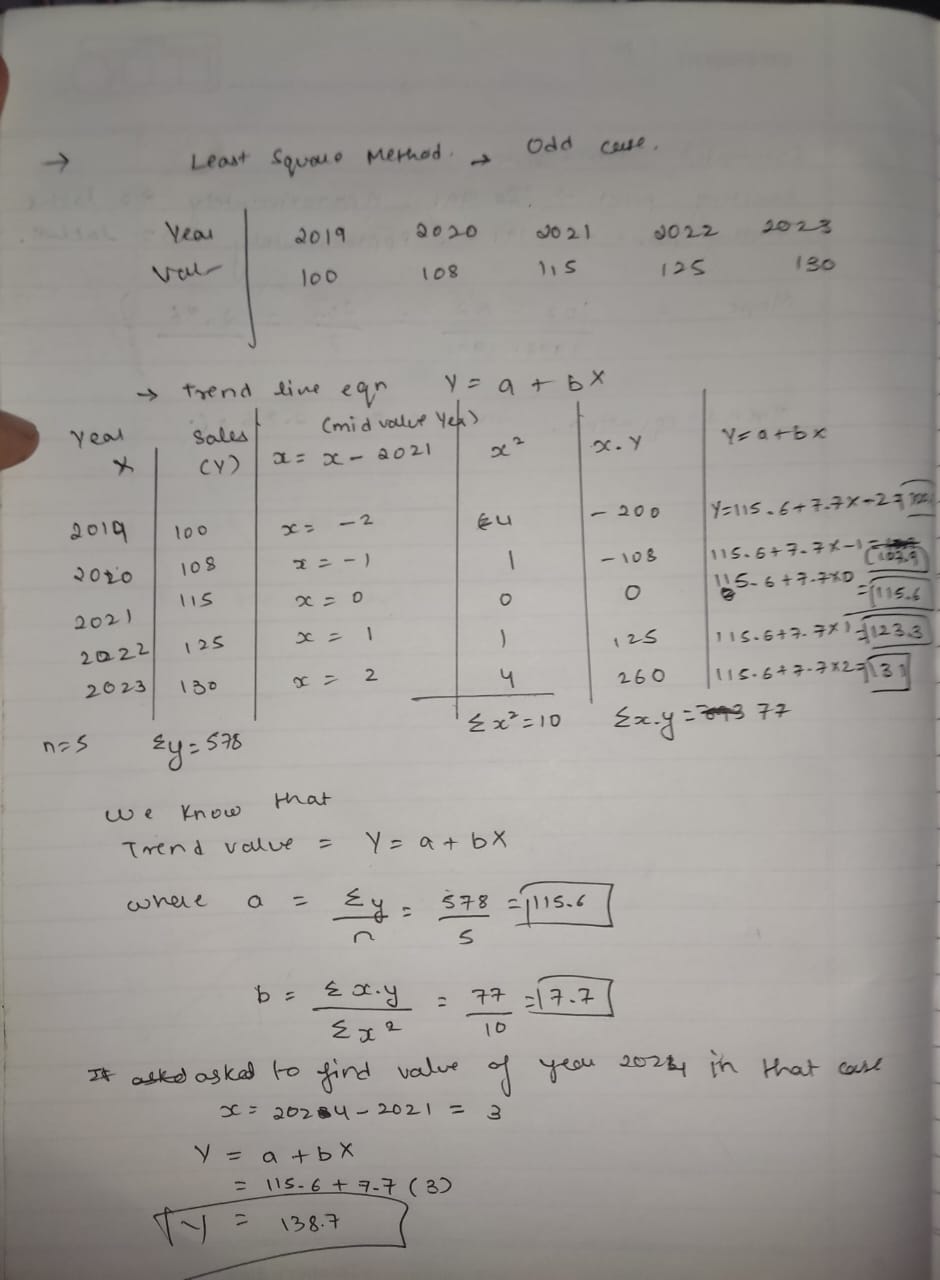 → Least Square Method. → Odd case.
Year 2019 2020 2021 2022 2023
Val 100 108 115 125 130
→ Trend line eqn Y = a + bX
Year Sales (mid value Year) x² x.y Y=a+bx
X (Y) x = x - 2021
2019 100 x = -2 4 -200 Y=115.6+7.7x-2=
2020 108 x = -1 1 -108 115.6+7.7x-1=
2021 115 x = 0 0 0 115.6+7.7x0 =115.6
2022 125 x = 1 1 125 115.6+7.7x1=123.3
2023 130 x = 2 4 260 115.6+7.7x2=131
n=5 Σy=578 Σx²=10 Σx.y = 77
We know that
Trend value = Y = a + bX
where a = Σy/n = 578/5 = 115.6
b = Σx.y/Σx² = 77/10 = 7.7
If asked to find value of year 2024 in that case
x = 2024 - 2021 = 3
Y = a + bX
= 115.6 + 7.7 (3)
Y = 138.7